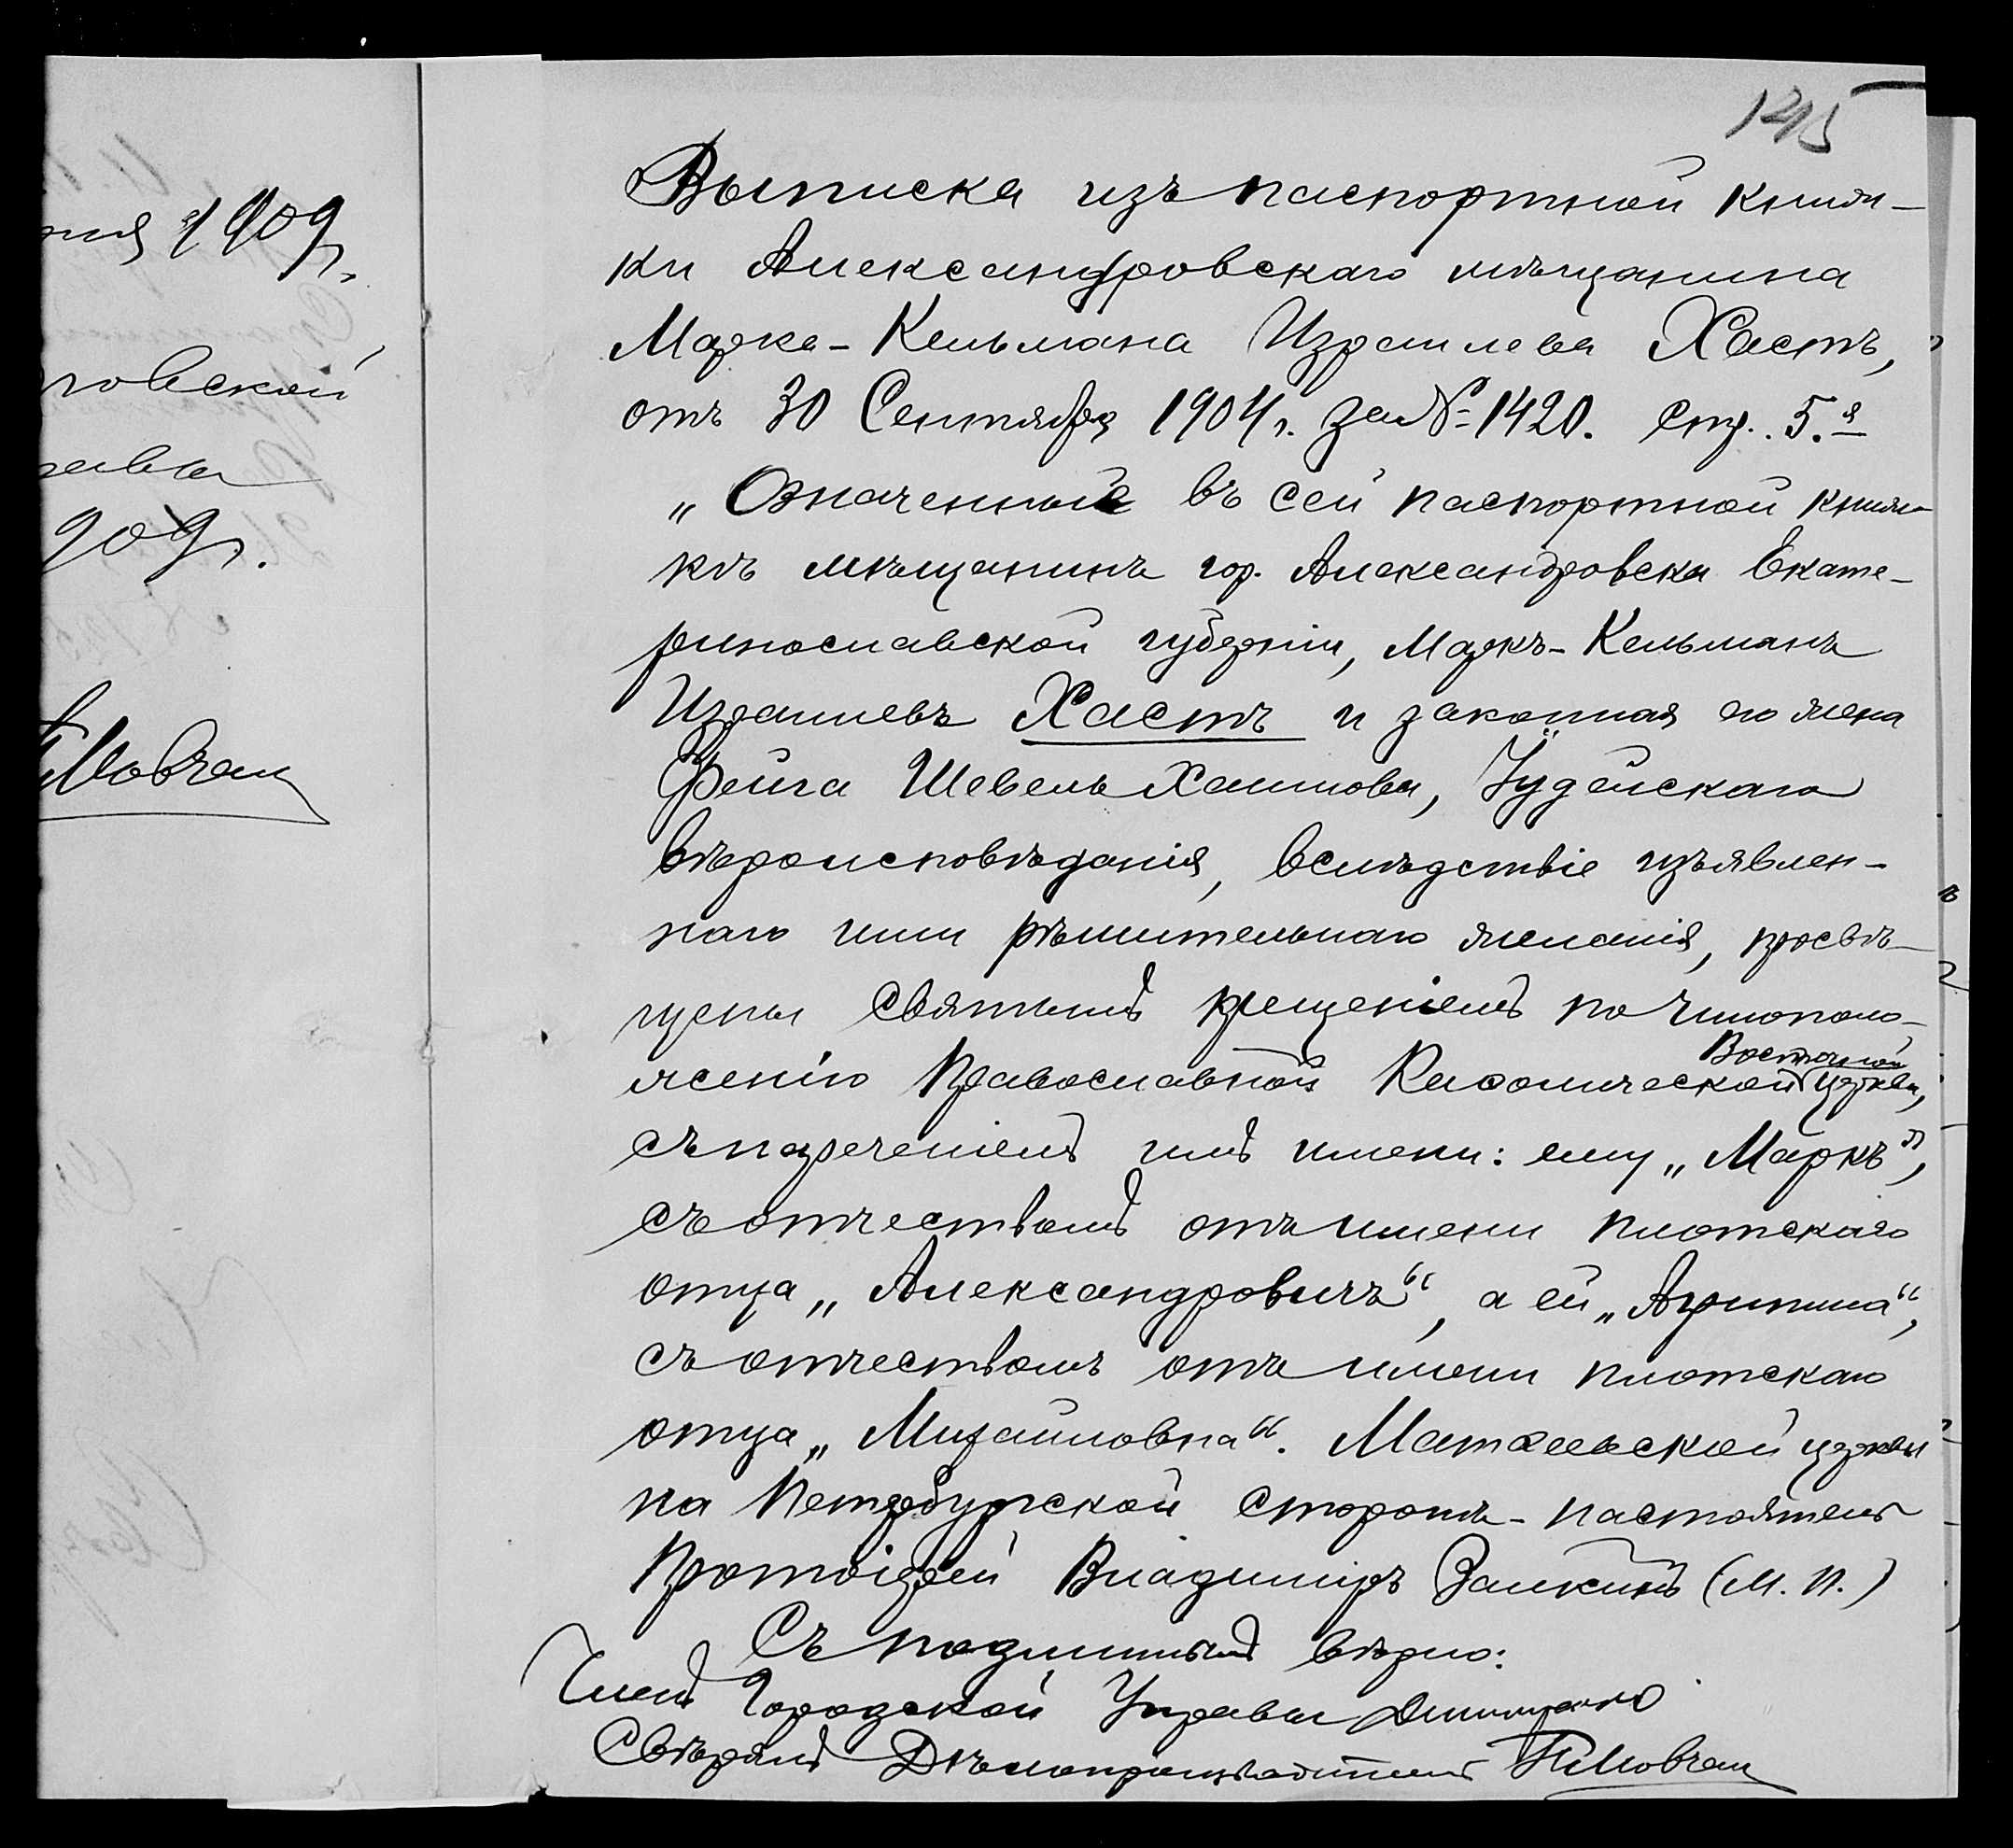 145
Выписка изъ паспортной книж-
ки Александровскаго мѣщанина
Марка-Кельмана Израилева Хастъ,
отъ 30 Сентября 1904 г. за № 1420. стр. 5.я
„Означенные въ сей паспортной книж-
кѣ мѣщанинъ гор. Александровска Екате-
ринославской губерніи, Маркъ-Кельманъ
Израилевъ Хастъ и законная его жена
Фейга Шевель Хаимова, Іудейскаго
вѣроисповѣданія, вслѣдствіе изъявлен-
наго ими рѣшительнаго желанія, просвѣ-
щены Святымъ крещеніемъ по чинополо-
женію Православной Каѳолической Восточной церкви,
съ нареченіемъ имъ имени: ему „Маркъ“,
съ отчествомъ отъ имени плотскаго
отца „Александровичъ“, а ей „Агрипина“,
съ отчествомъ отъ имени плотскаго
отца „Михайловна“. Матѳеевской церкви
на Петербургской сторонѣ - настоятель
Протоіерей Владиміръ (М. П.)
Съ подлиннымъ вѣрно:
Членъ Городской Управы
Свѣрялъ Дѣлопроизводитель Мовчан
1909 г.
ровской
равы
909 г.
Мовчан